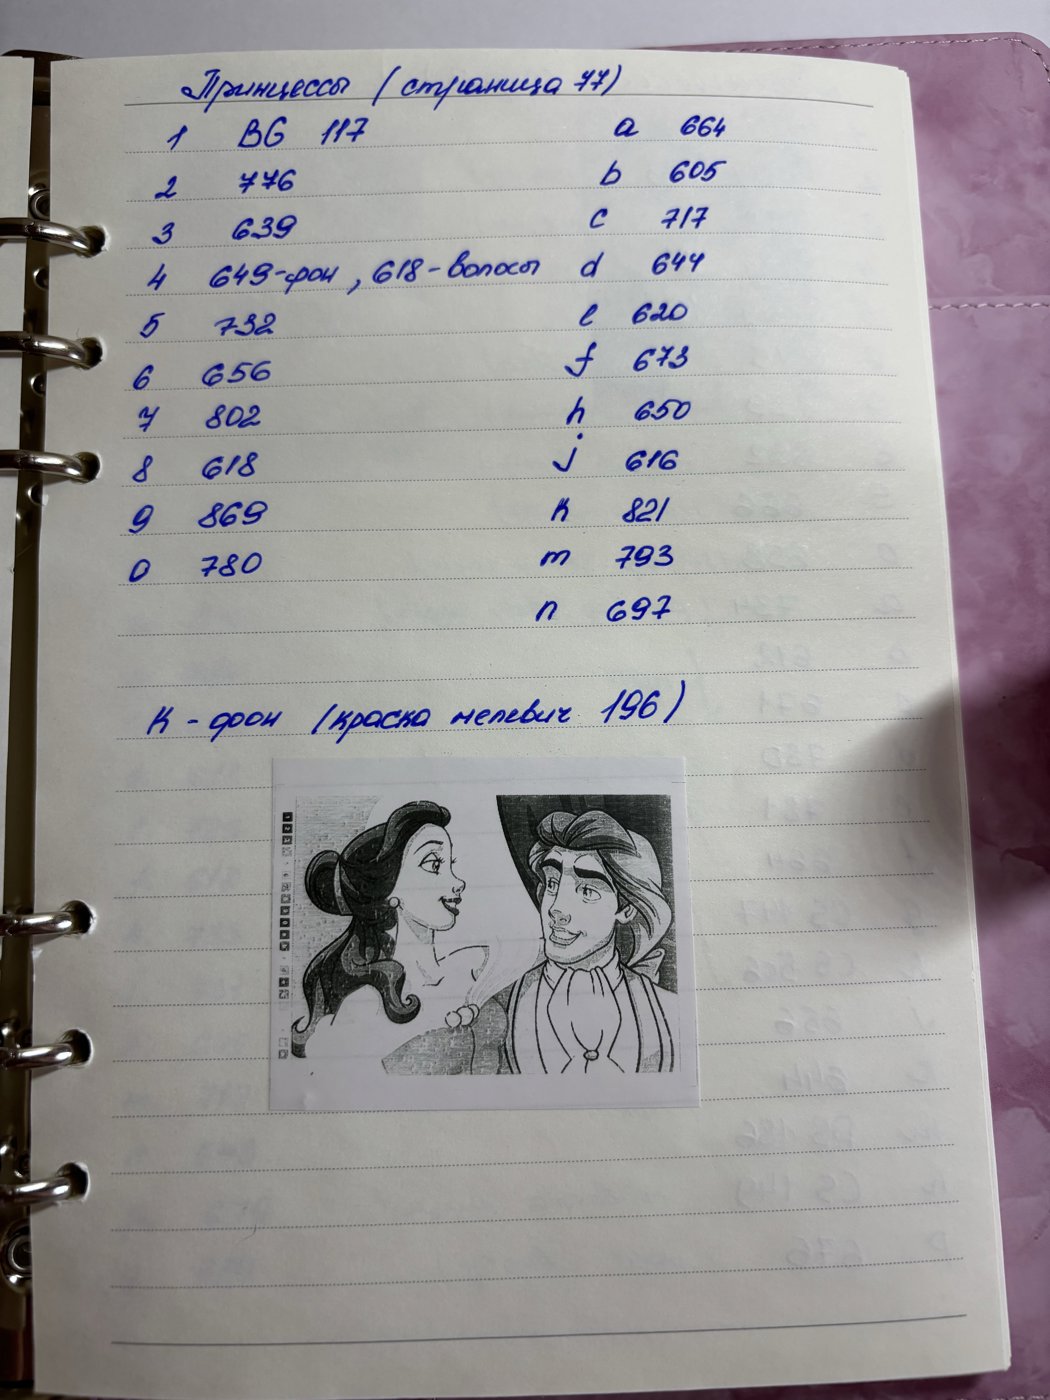 Принцессы (страница 77)
1 BG 117 a 664
2 776 b 605
3 639 c 717
4 649-фон, 618-волосы d 644
5 732 e 620
6 656 f 673
7 802 h 650
8 618 j 616
9 869 k 821
0 780 m 793
n 697
К - фон (краска мелевич 196)